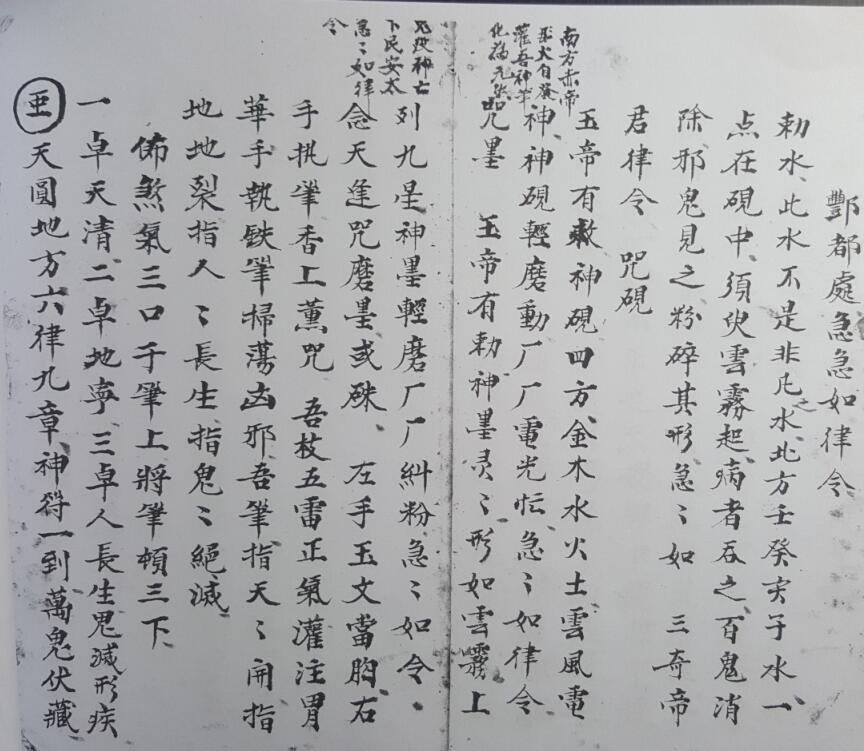 酆都處急急如律令
勅水、此水不是非凡之水、北方壬癸亥子水、一
点在硯中、須臾雲霧起、病者吞之、百鬼消
除、邪鬼見之、粉碎其形、急〻如 三奇帝
君律令 咒硯
南方赤帝
火自
吾神筆
化為
玉帝有敕神硯四方、金木水火土雲風電
神、神硯輕磨動厂厂電光忙、急〻如律令
咒墨 玉帝有勅神墨灵〻、形如雲霧上
神亡
下民安太
急〻如律
令
列九星神墨輕磨厂厂糾粉急〻如令、
念天逢咒磨墨或硃、 左手玉文當胸、右
手执筆香上薰咒 吾枝五雷正氣灌注胃
華手執鉄筆掃蕩凶邪吾筆指天〻開指
地地裂指人〻長生指鬼〻絕滅
佈煞氣三口于筆上將筆頓三下
一卓天清、二卓地寧、三卓人長生鬼滅形疾
亜 天圓地方六律九章、神符一到萬鬼伏藏